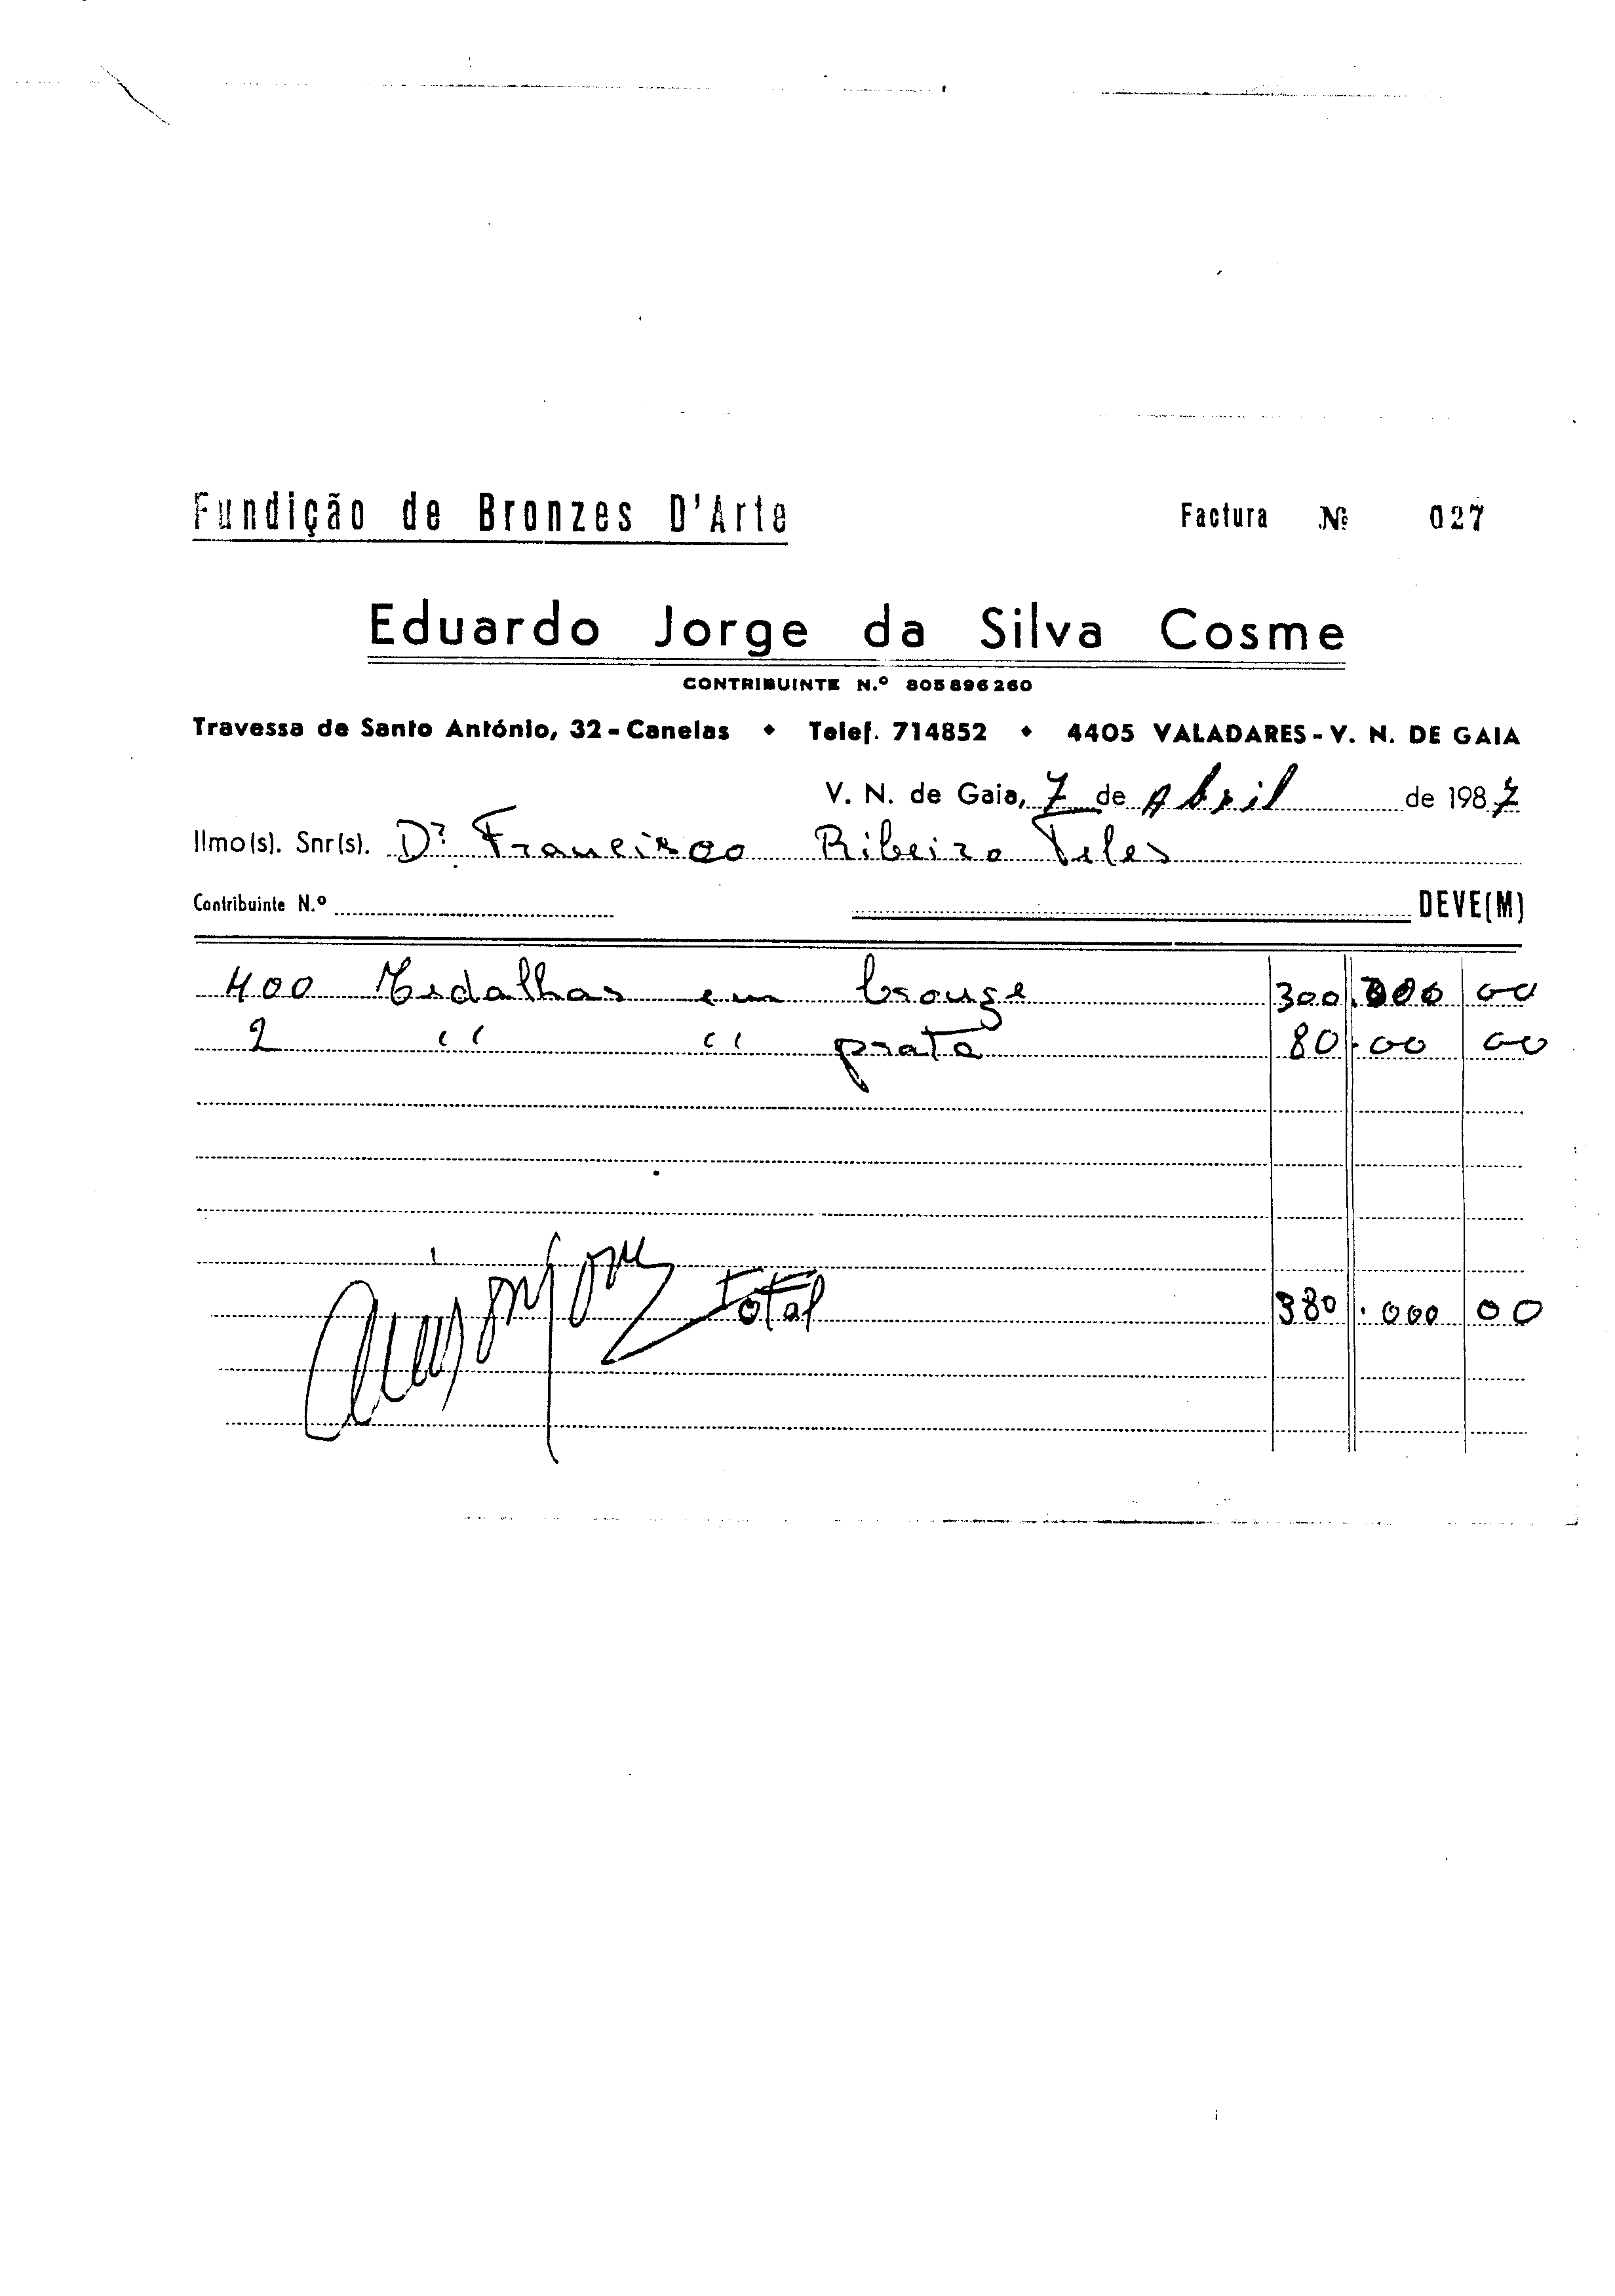 Fundição de Bronzes D'Arte Factura Nº 027
Eduardo Jorge da Silva Cosme
CONTRIBUINTE N.º 805896260
Travessa de Santo António, 32 - Canelas ♦ Telef. 714852 ♦ 4405 VALADARES - V. N. DE GAIA
V. N. de Gaia, 7 de Abril de 1987
Ilmo(s). Snr(s). Dr. Francisco Ribeiro Teles
Contribuinte N.º DEVE(M)
400 Medalhas em bronze 300.000 00
2 " " prata 80.00 00
total 380.000 00